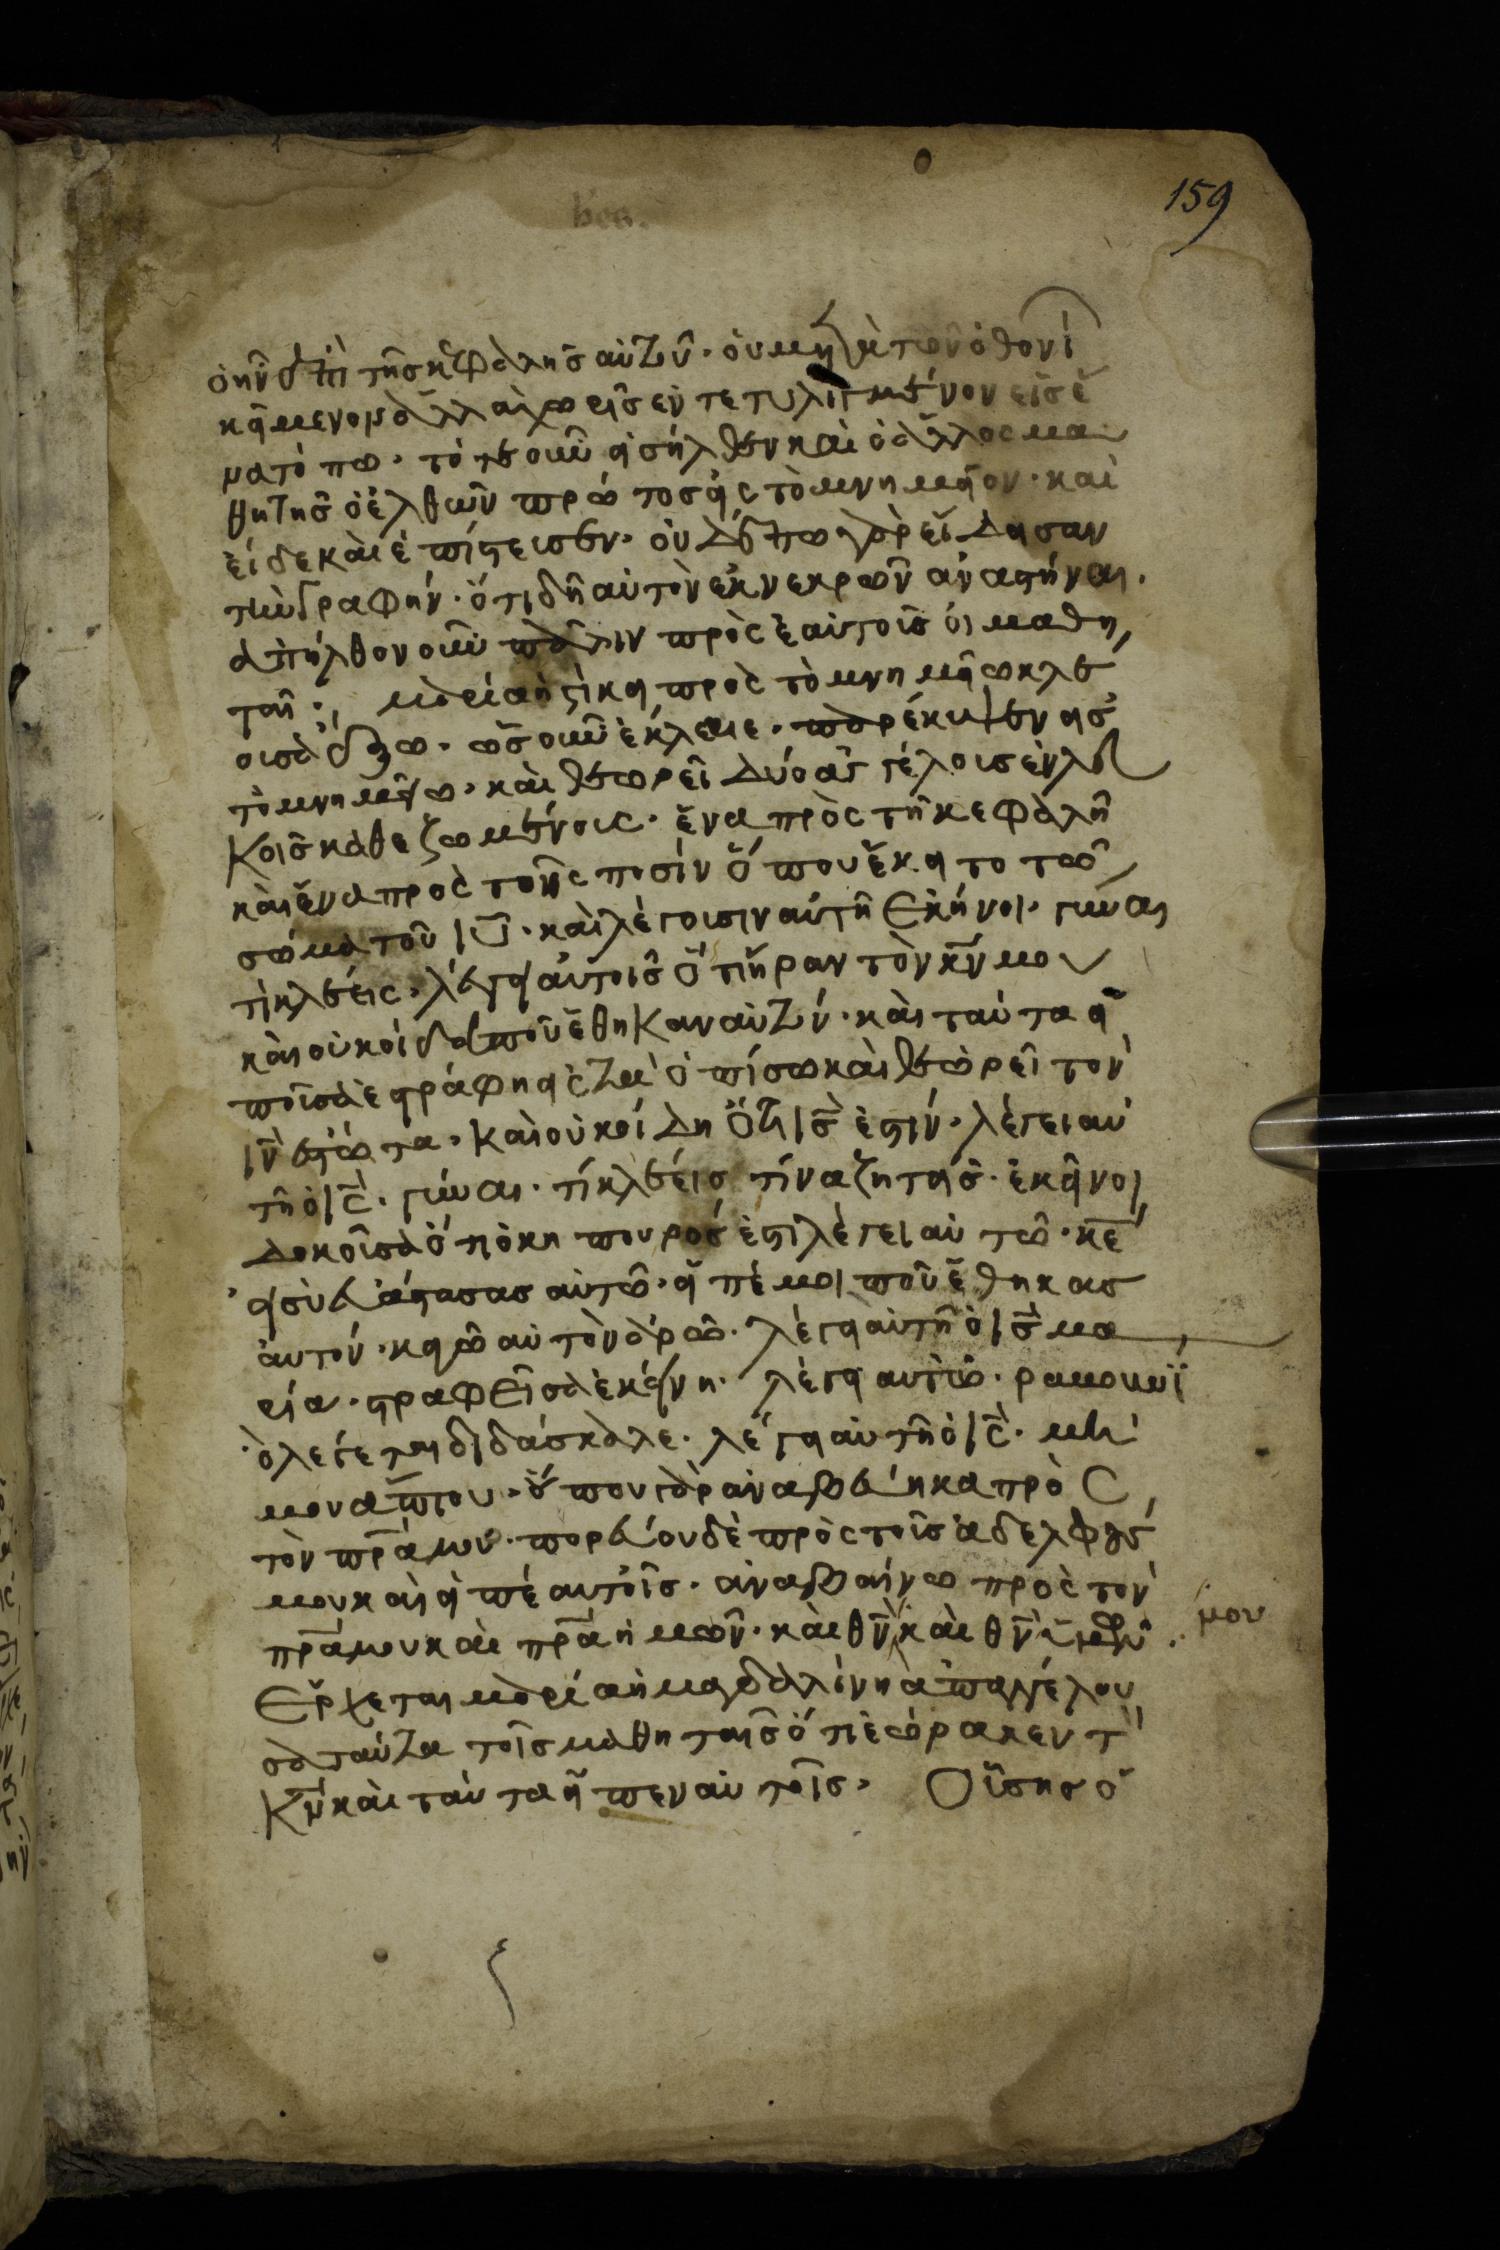 159
ὁ ἦν ἐπὶ τῆς κεφαλῆς αὐτοῦ· οὐ μετὰ τῶν ὀθονί
κήμενον ἀλλὰ χωρεὶς ἐντετυλιγμένον εἰς ἕ
να τόπω· τότε οὖν ἠσήλθεν καὶ ὁ ἄλλος μα
θητὴς ὁ ἐλθὼν πρώτος ἠς τὸ μνημήον· καὶ
εἶδε καὶ ἐπίστεισεν· οὐδέπω γὰρ εἴδησαν
τὴν γραφήν· ὅτι δῆ αὐτὸν ἐκ νεκρῶν ἀναστήναι·
ἀπήλθον οὖν πάλιν πρὸς ἑαὐτοῖς οἱ μαθη
ταῆ· μαρία ἡστίκη πρὸς τὸ μνημήω κλε
οισα ἔξω· ὡς οὖν ἐκλεε· παρέκυψεν ησ
τὸ μνημήω· καὶ θεωρεῖ δύο ἀγγέλοις ἐν λευ
κοῖς καθεζωμένοις· ἕνα πρὸς τῆ κεφαλῆ
καὶ ἕνα πρὸς τοῖς ποσὶν ὅπου ἔκητο τῶ
σώμα τοῦ ιυ· καὶ λέγοισιν αὐτῆ ἐκήνοι· γύναι
τί κλέεις· λέγη αὐτοις ὅτι ἦραν τὸν κν μου
καὶ οὐκ οἶδα ποῦ ἔθηκαν αὐτόν· καὶ ταύτα ἠ
ποῖσα ἐστράφη ἠς τὰ ὀπίσω καὶ θεωρεῖ τὸν
ιν ἐστώτα· καὶ οὐκ οἴδη ὅτι ις ἐστίν· λέγει αὐ
τῆ ὁ ις· γύναι· τί κλέεις τίνα ζητῆς· ἐκῆνοι
δοκοῖσα ὅτι ὁ κηπουρός ἐστι λέγει αὐτῶ· κε
ἠ σὺ ἐβάστασας αὐτῶ· ἠπέ μοι ποῦ ἔθηκας
αὐτόν· κηῶ αὐτὸν ἀρῶ· λέγη αὐτῆ ὁ ις μα
ρία· στραφεῖσα ἐκήνη· λέγη αὐτῶ· ραμουνὶ
ὁ λέγεται διδάσκαλε· λέγη αὐτῆ ὁ ις· μὴ
μου ἅπτου· οὔπου γὰρ ἀναβέβηκα πρὸς
τὸν πρα μου· πορεύου δὲ πρὸς τοῖς ἀδελφοίς
μου καὶ ἠπὲ αυτοῖς· ἀναβαίνω πρὸς τὸν
πρα μου καὶ πρα ἡμῶν· καὶ θν μου καὶ θν ὑμῶν
Ἔρχεται μαρία ἡ μαγδαλίνη ἀπαγγέλου
σα ταύτα τοῖς μαθηταὶς ὅτι ἑώρακεν τὸ
κν καὶ ταύτα ἦπεν αὐτοῖς· Οἴσης ὀ